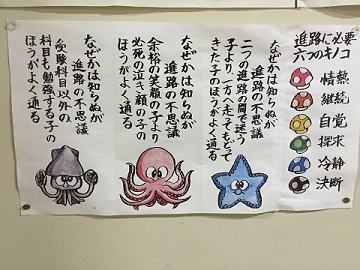 進路に必要
六つのキノコ
情熱
継続
自覚
探求
冷静
決断
なぜかは知らぬが
進路の不思議
二つの進路の間で迷う
子より、一方へ走ってもどって
きた子のほうがよく通る
なぜかは知らぬが
進路の不思議
余裕の笑顔の子より
必死の泣き顔の子の
ほうがよく通る
なぜかは知らぬが
進路の不思議
受験科目以外の
科目も勉強する子の
ほうがよく通る